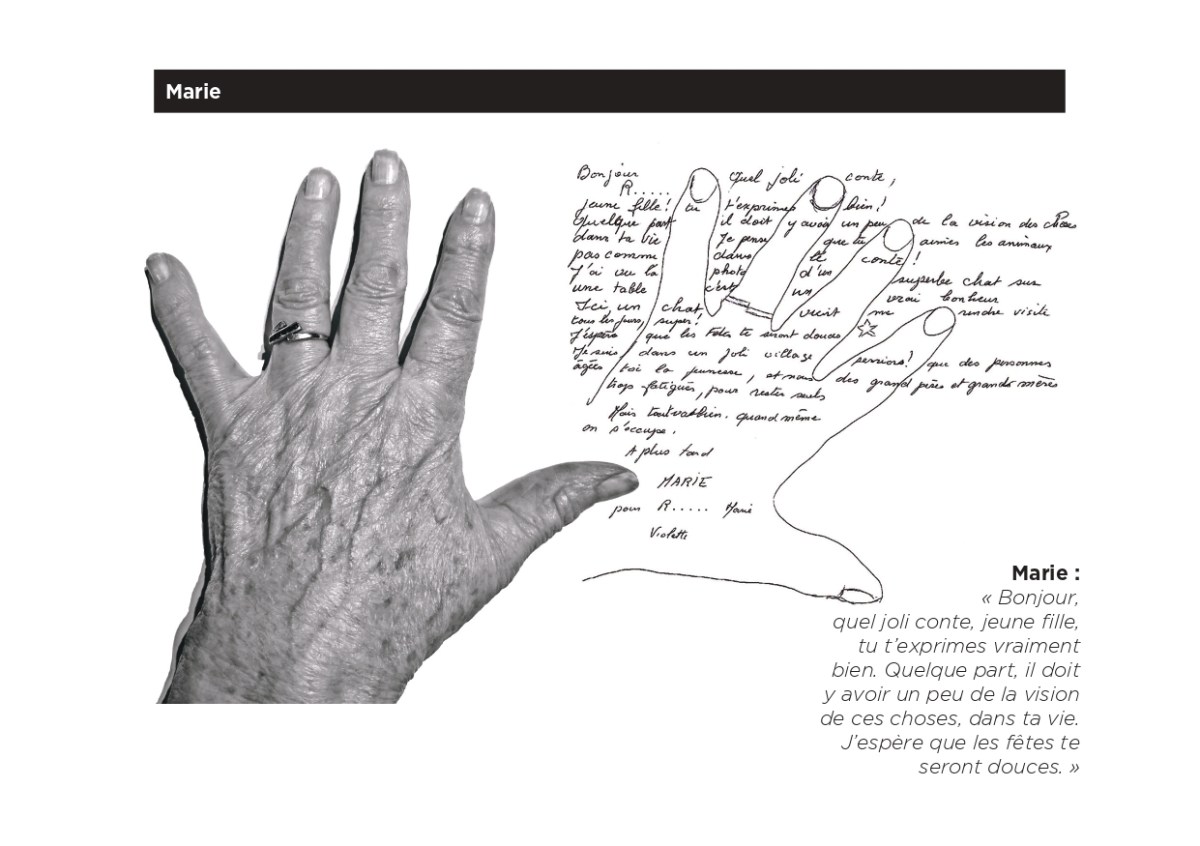 Marie
Bonjour Quel joli conte,
R.....
jeune fille! tu t'exprimes bien!
Quelque part il doit y avoir un peu de la vision des choses
dans ta vie Je pense que tu aimes les animaux
pas comme dans le conte!
J'ai vu la photo d'un superbe chat sur
une table c'est un vrai bonheur
Ici un chat vient me rendre visite
tous les jours, super!
J'espère que les Fêtes te seront douces
Je suis dans un joli village seniors! que des personnes
âgées toi la jeunesse, et nous des grand pères et grands mères
trop fatigués, pour rester seuls
Mais tout va bien. quand même
on s'occupe.
A plus tard
MARIE
pour R..... Marie
Violette
Marie :
« Bonjour,
quel joli conte, jeune fille,
tu t'exprimes vraiment
bien. Quelque part, il doit
y avoir un peu de la vision
de ces choses, dans ta vie.
J'espère que les fêtes te
seront douces. »